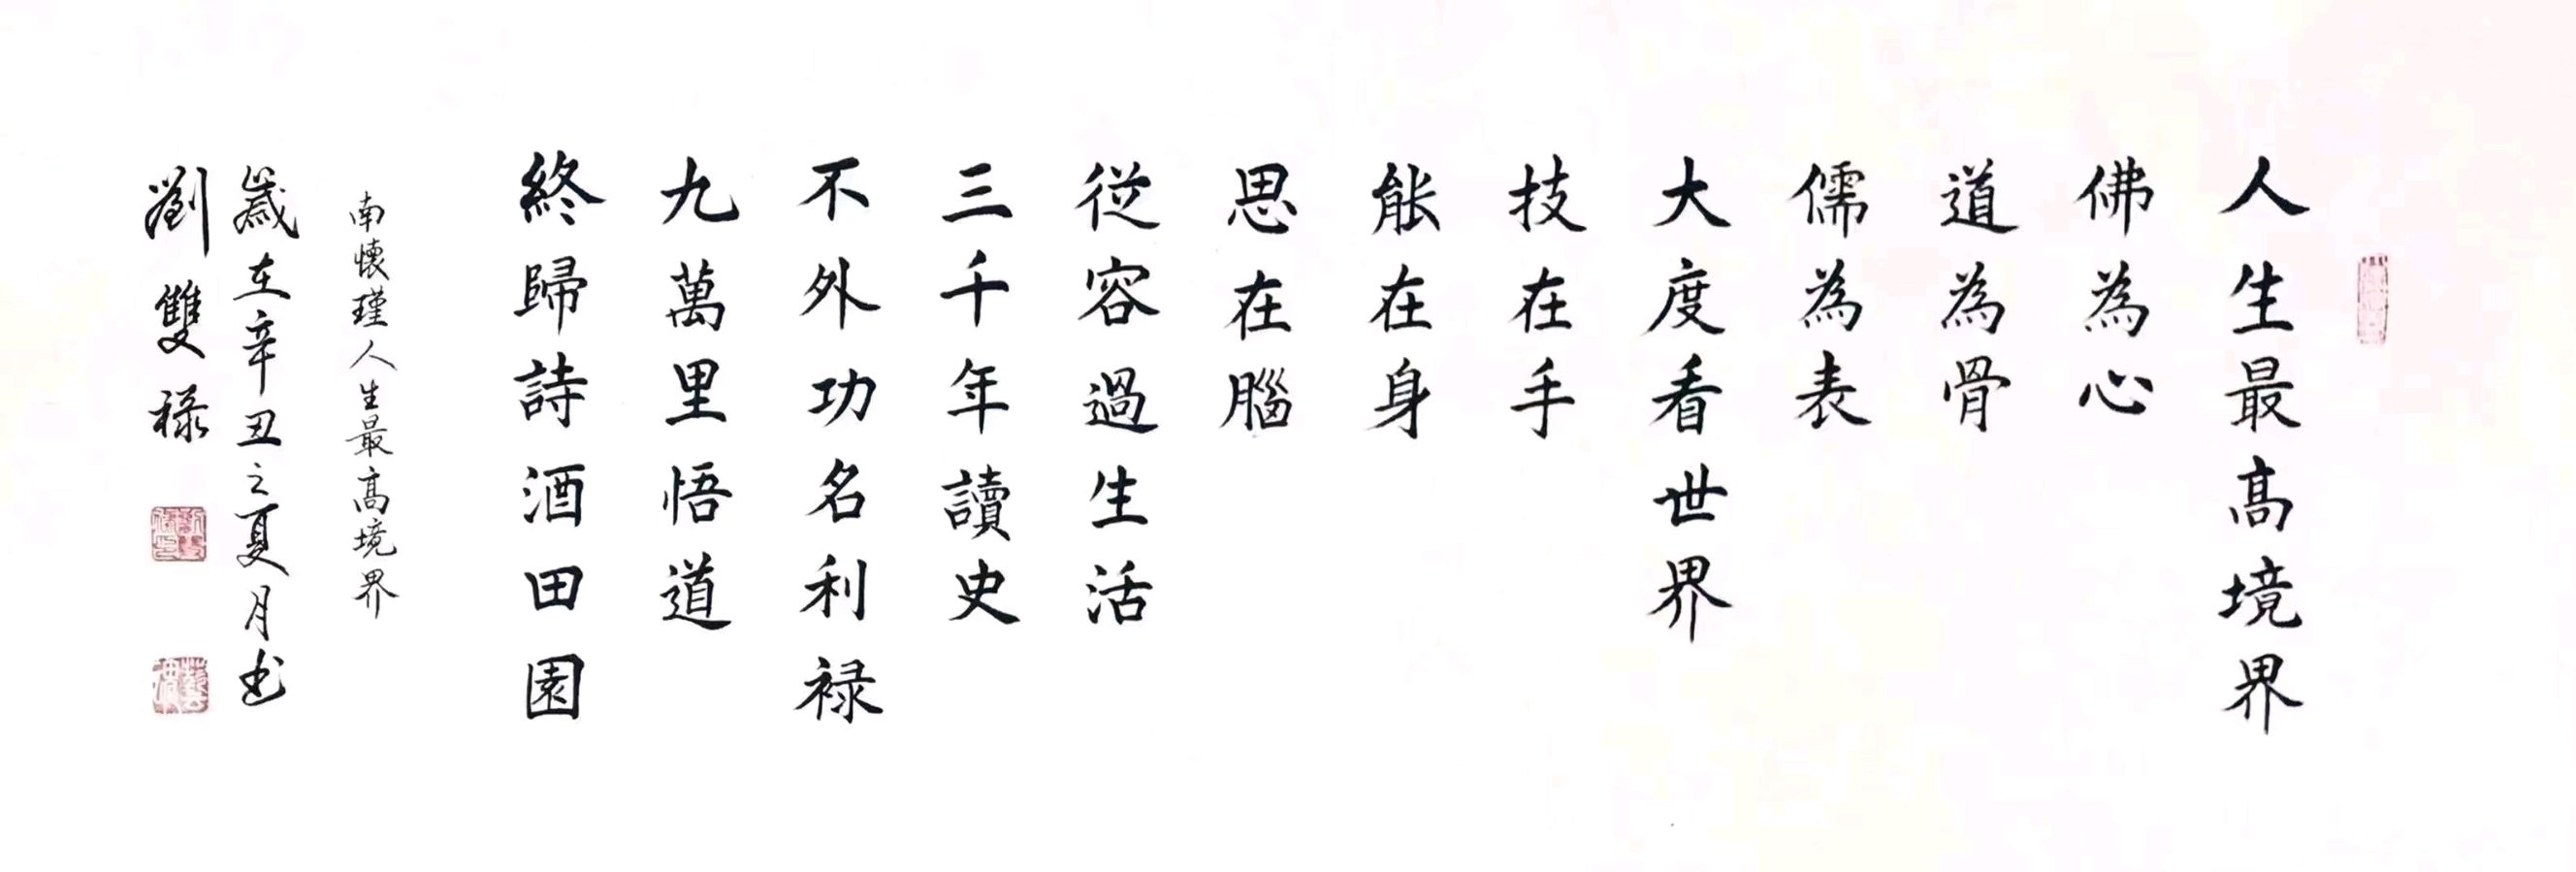 人生最高境界
佛為心
道為骨
儒為表
大度看世界
技在手
能在身
思在腦
從容過生活
三千年讀史
不外功名利禄
九萬里悟道
終歸詩酒田園
南懷瑾人生最高境界
歲在辛丑之夏月书
劉雙禄